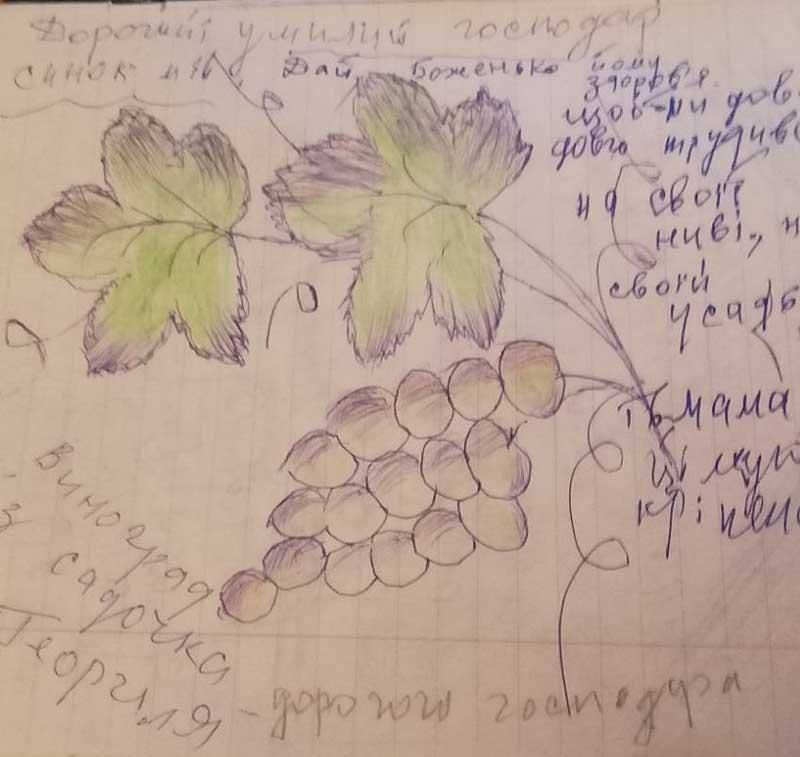 Дорогий, умилий господар
синок мій. Дай, Боженько йому
здоров'я.
щоб-ми дов
довго трудивс
на своїй
ниві, н
своїй
усадьб
мама
цілую
кріпень
Виноград
з садочка
Георгія
- дорогого господара